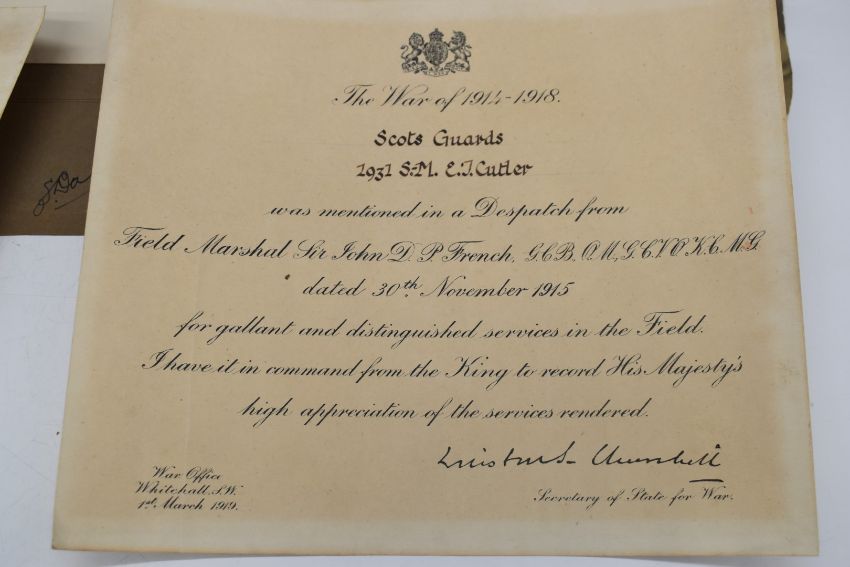 The War of 1914-1918.
Scots Guards
1931 S.-M. E.J. Cutler
was mentioned in a Despatch from
Field Marshal Sir John D. P. French, G.C.B., O.M., G.C.V.O., K.C.M.G.
dated 30th November 1915
for gallant and distinguished services in the Field.
I have it in command from the King to record His Majesty's
high appreciation of the services rendered.
Winston S. Churchill
War Office
Whitehall, S.W.
1st March 1919.
Secretary of State for War.